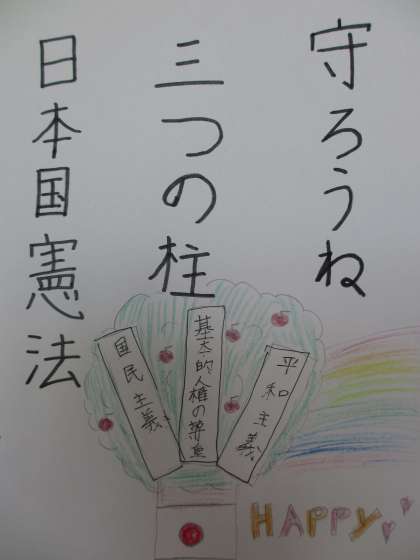 守ろうね
三つの柱
日本国憲法
国民主義
基本的人権の尊重
平和主義
HAPPY